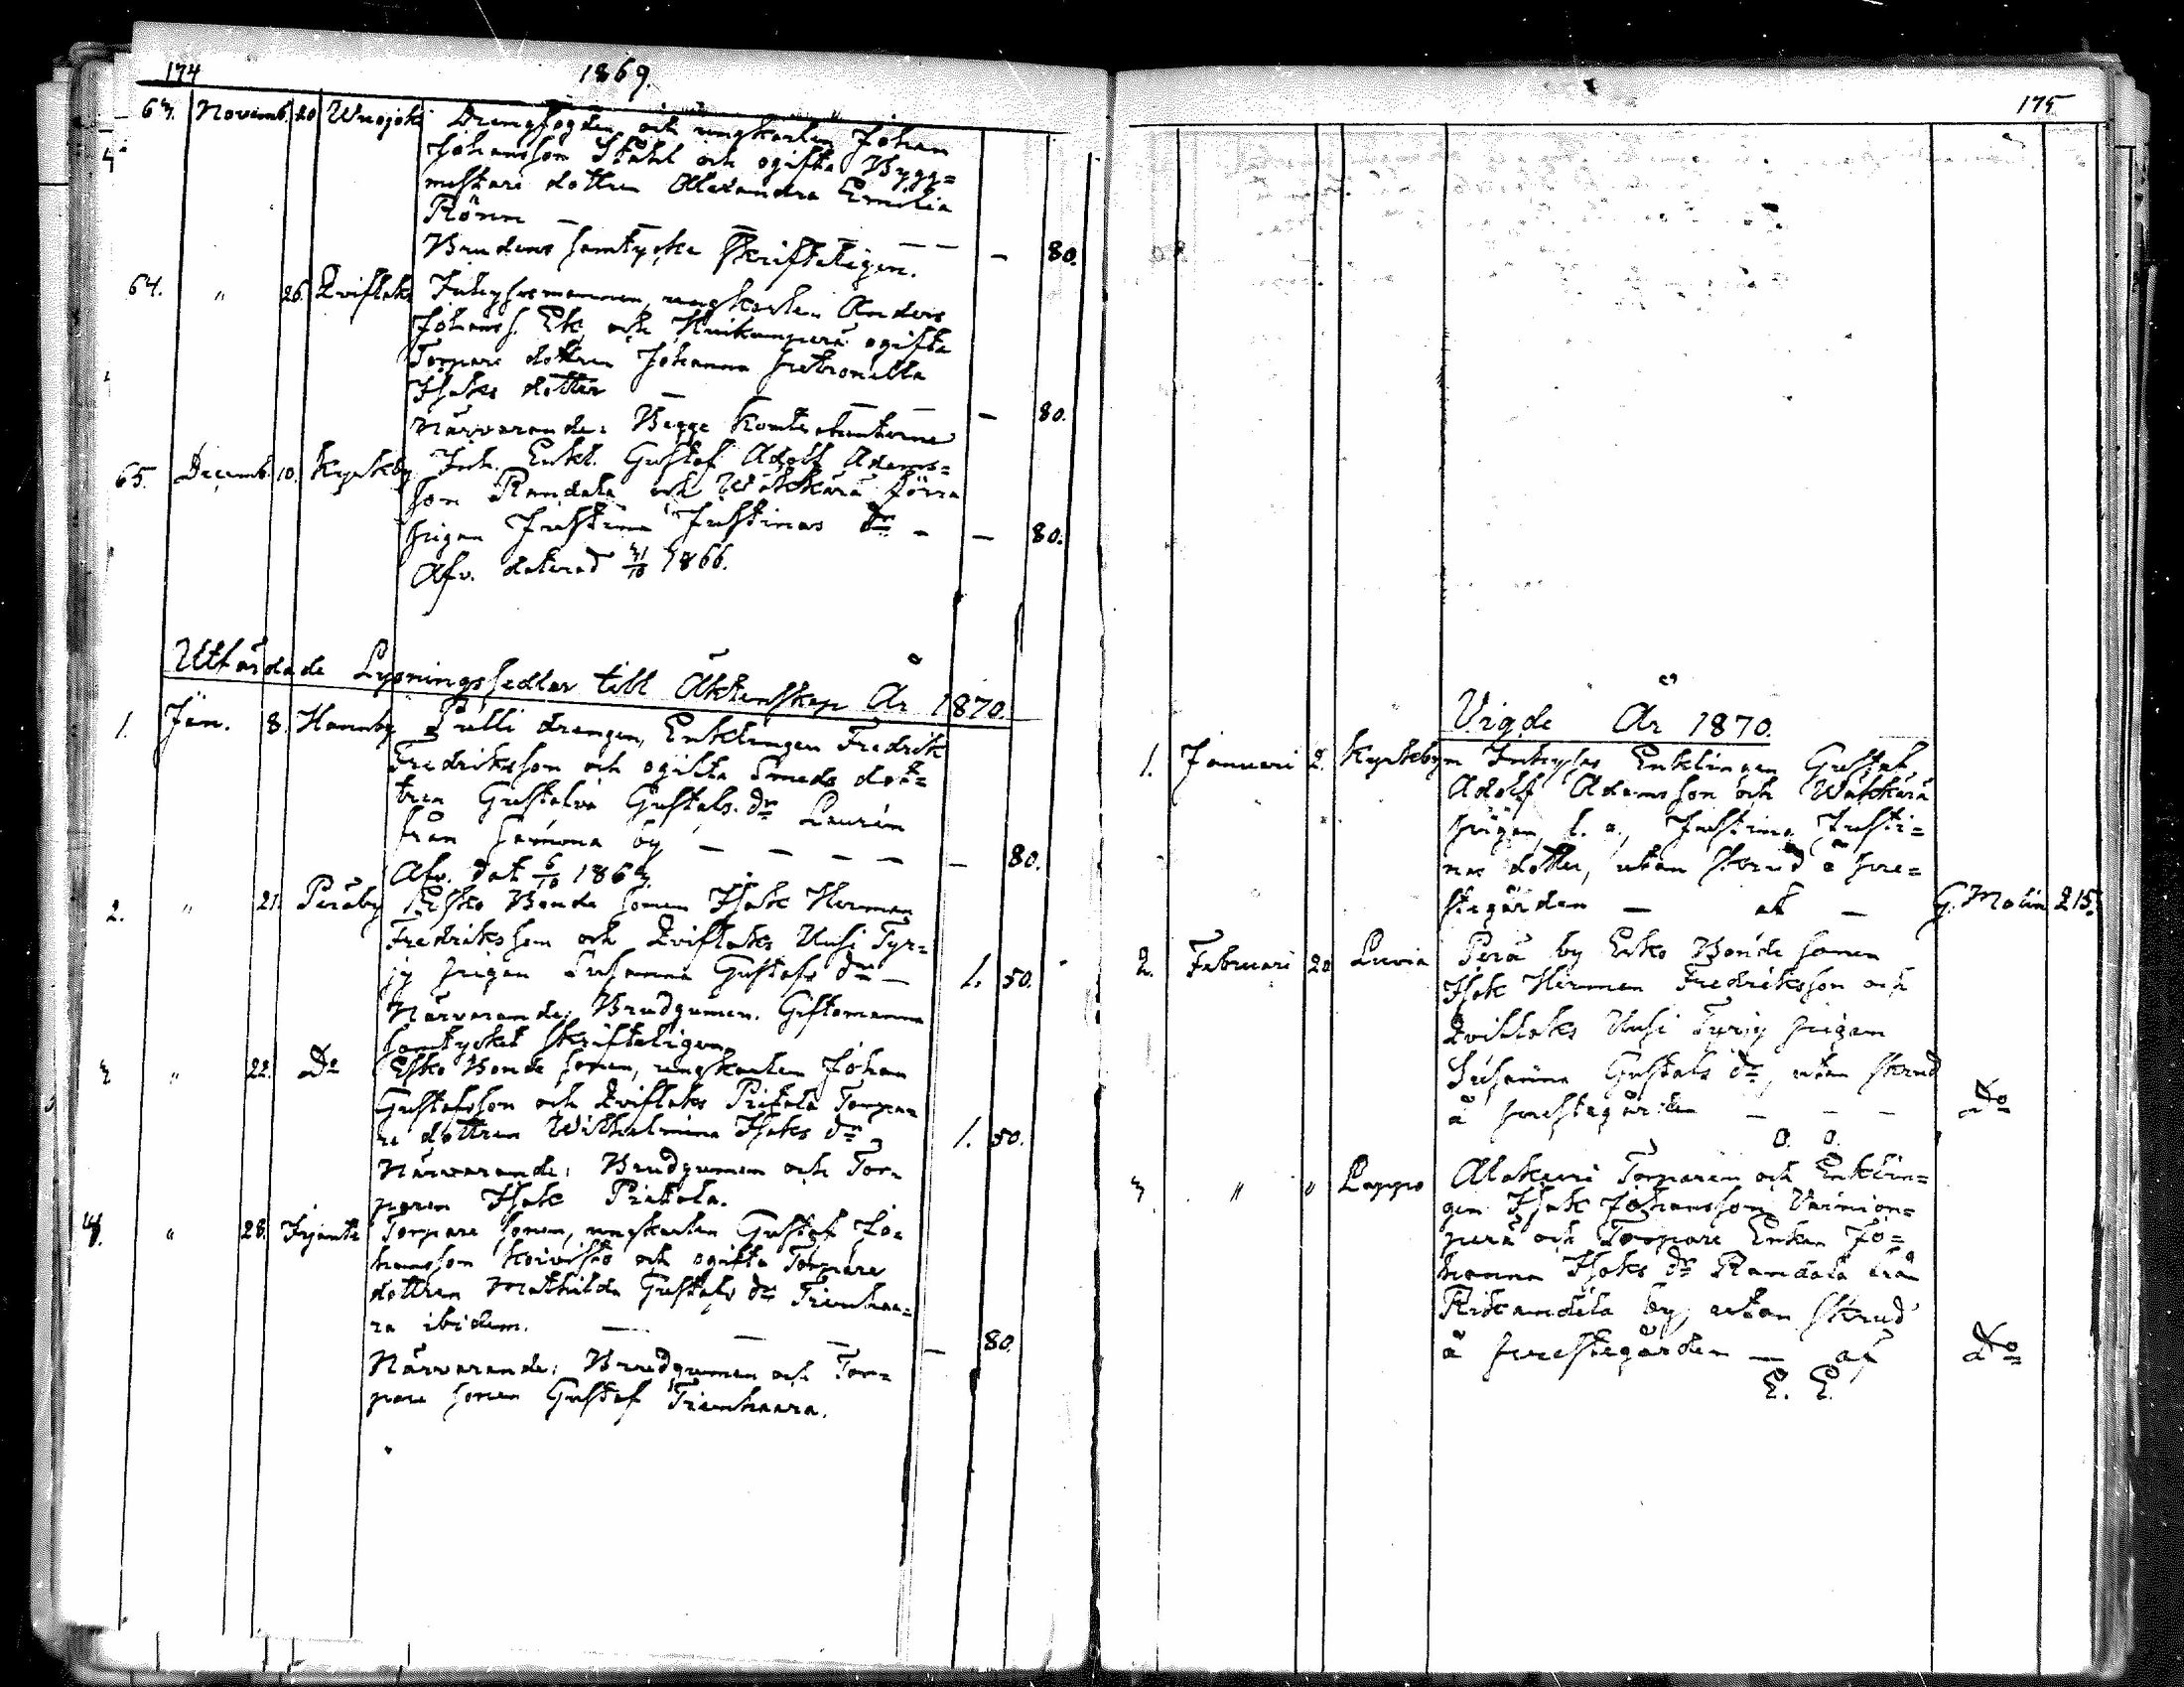 174
1869.
63. Novemb. 20 Wuojoki Drengfogden och ungkarlen Johan
Johansson Ståhl och ogifta Bygg=
mestare dottren Alexandra Emilia
Rönn — — — — —
Brudens samtycke skrifteligen. — 80.
64. " 26. Qviflaks Inhysesmannen, ungkarlen Anders
Johanss. Ek och ogifta
Torpare dottren Johanna Petronella
Isaks dotter — — — — 80.
Närvarande: Begge Kontrahenterne
65. Decemb. 10. Kyrkeby Inh. Enkl. Gustaf Adolf Adams=
son Randala och Wäkkärä förra
pigan Justina Justinas dr — — 80.
Afv. daterad 31/10 1866.
Utfärdade Lysningssedlar till Äktenskap År 1870.
1. Jan. 8. Hannby drengen, Enklingen Fredrik
Fredriksson och ogifta Smeds dot=
tren Gustafva Gustafs. dr Laurén
från by — — — — — 80.
Afv. dat 6/10 1863.
2. " 21. Peräby Esko Bonde sonen Isak Herman
Fredriksson och Qviflaks Uusi Tyr=
jy pigan Susanna Gustafs dr — 1. 50.
Närvarande: Brudgumen. Giftomanna
samtycket skrifteligen
3 " 22. Do Esko Bonde sonen, ungkarlen Johan
Gustafsson och Qviflaks Pirtola Torpa=
re dottren Wilhelmina Isaks dr 1. 50.
Närvarande: Brudgumen och Tor=
paren Isak Pirtola.
4. " 28. Irjante Torpare sonen, ungkarlen Gustaf Jo=
hansson Koivisto och ogifta Torpare
dottren Mathilda Gustafs dr Tienhaa=
ra ibidem. — — — — 80.
Närvarande: Brudgumen och Tor=
pare sonen Gustaf Tienhaara.
175
Vigde År 1870.
1. Januari 2. Kyrkeby Inhyses Enklingen Gustaf
Adolf Adamsson och Wäkkärä
pigan, f. a., Justina Justi=
nas dotter, utan skrud å pre=
stgården — af — G. Molin 215.
2. Februari 20 Luvia Perä by Esko Bonde sonen
Isak Herman Fredriksson och
Qviflaks Uusi Tyrjy pigan
Susanna Gustafs dr, utan skrud
å prestegården — — — Do
O. O.
3 " " Lappo Alakeuri Torparen och Enklin=
gen Isak Johansson Vainion=
perä och Torpare Enkan Jo=
hanna Isaks dr Randala från
Rikantila by, utan skrud
å prestegården — af Do
E. E.